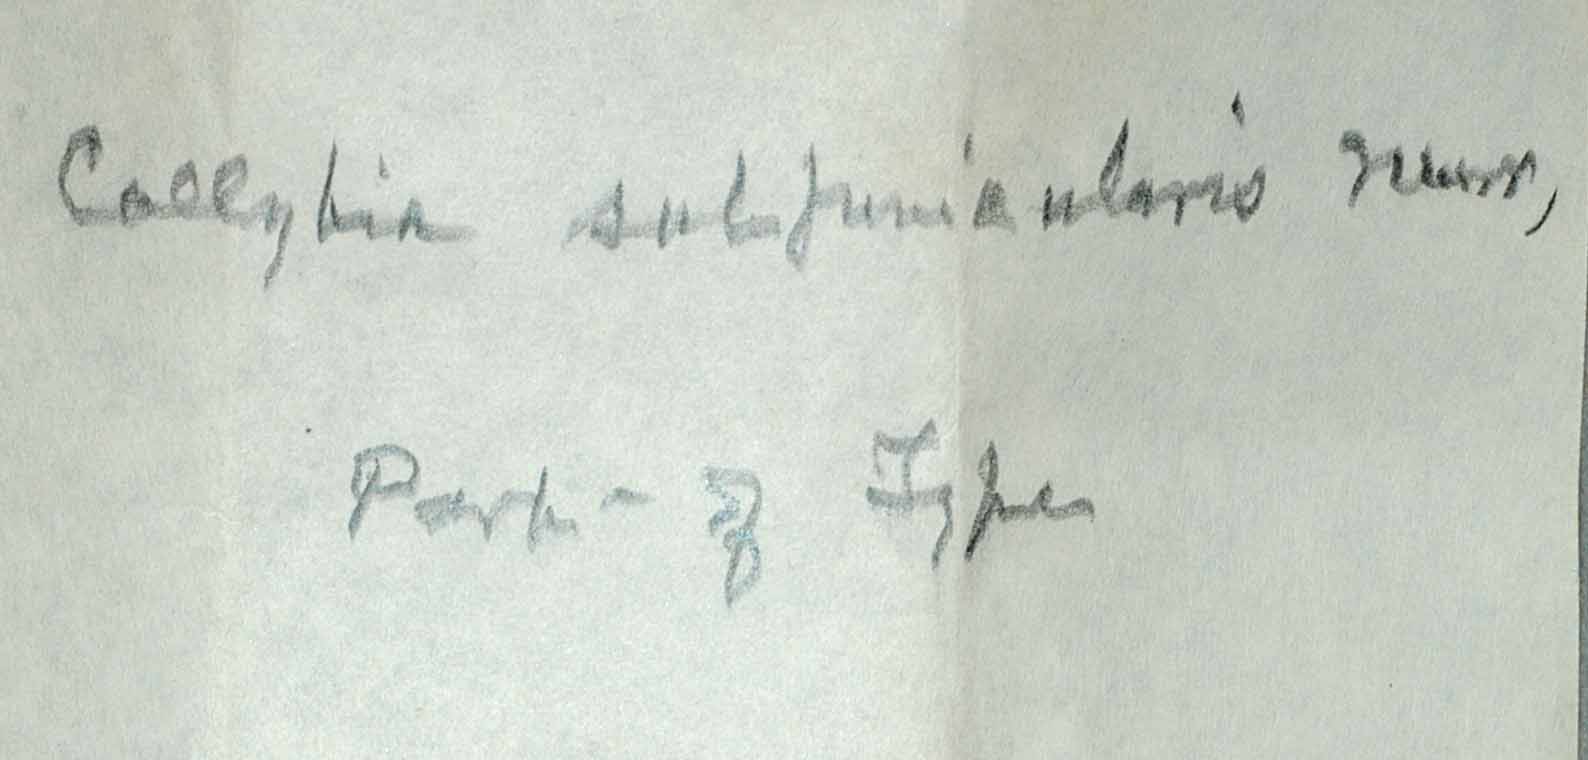 Collybia subfunicularis Murr,
Part of Type